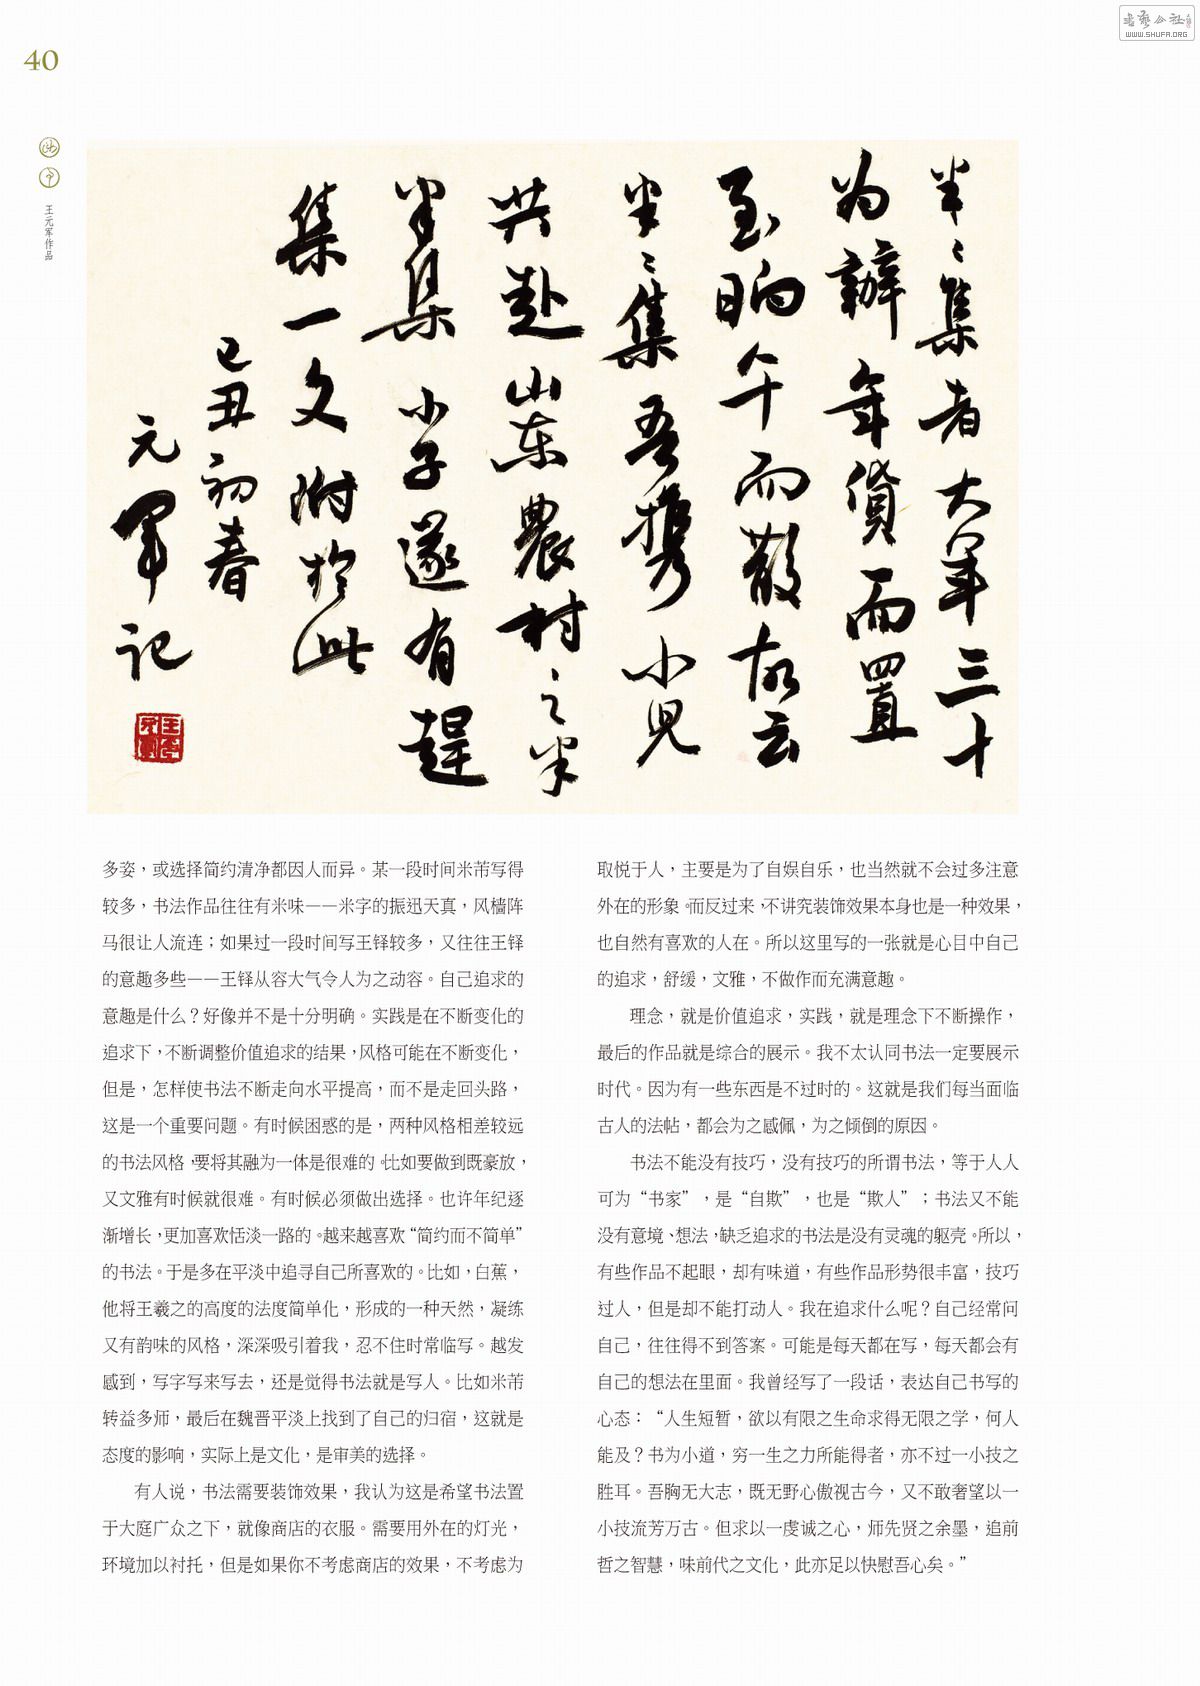 40
書藝公社
WWW.SHUFA.ORG
王元军作品
半〻集者大年三十
为辦年貨而置
至晌午而散故云
半〻集吾携小児
共赴山东農村之半
半集小子遂有趕
集一文附於此
己丑初春
元軍记
多姿，或选择简约清净都因人而异。某一段时间米芾写得
较多，书法作品往往有米味——米字的振迅天真，风樯阵
马很让人流连；如果过一段时间写王铎较多，又往往王铎
的意趣多些——王铎从容大气令人为之动容。自己追求的
意趣是什么？好像并不是十分明确。实践是在不断变化的
追求下，不断调整价值追求的结果，风格可能在不断变化，
但是，怎样使书法不断走向水平提高，而不是走回头路，
这是一个重要问题。有时候困惑的是，两种风格相差较远
的书法风格，要将其融为一体是很难的。比如要做到既豪放，
又文雅有时候就很难。有时候必须做出选择。也许年纪逐
渐增长，更加喜欢恬淡一路的。越来越喜欢“简约而不简单”
的书法。于是多在平淡中追寻自己所喜欢的。比如，白蕉，
他将王羲之的高度的法度简单化，形成的一种天然，凝练
又有韵味的风格，深深吸引着我，忍不住时常临写。越发
感到，写字写来写去，还是觉得书法就是写人。比如米芾
转益多师，最后在魏晋平淡上找到了自己的归宿，这就是
态度的影响，实际上是文化，是审美的选择。
有人说，书法需要装饰效果，我认为这是希望书法置
于大庭广众之下，就像商店的衣服。需要用外在的灯光，
环境加以衬托，但是如果你不考虑商店的效果，不考虑为
取悦于人，主要是为了自娱自乐，也当然就不会过多注意
外在的形象。而反过来，不讲究装饰效果本身也是一种效果，
也自然有喜欢的人在。所以这里写的一张就是心目中自己
的追求，舒缓，文雅，不做作而充满意趣。
理念，就是价值追求，实践，就是理念下不断操作，
最后的作品就是综合的展示。我不太认同书法一定要展示
时代。因为有一些东西是不过时的。这就是我们每当面临
古人的法帖，都会为之感佩，为之倾倒的原因。
书法不能没有技巧，没有技巧的所谓书法，等于人人
可为“书家”，是“自欺”，也是“欺人”；书法又不能
没有意境、想法，缺乏追求的书法是没有灵魂的躯壳。所以，
有些作品不起眼，却有味道，有些作品形势很丰富，技巧
过人，但是却不能打动人。我在追求什么呢？自己经常问
自己，往往得不到答案。可能是每天都在写，每天都会有
自己的想法在里面。我曾经写了一段话，表达自己书写的
心态：“人生短暂，欲以有限之生命求得无限之学，何人
能及？书为小道，穷一生之力所能得者，亦不过一小技之
胜耳。吾胸无大志，既无野心傲视古今，又不敢奢望以一
小技流芳万古。但求以一虔诚之心，师先贤之余墨，追前
哲之智慧，味前代之文化，此亦足以快慰吾心矣。”